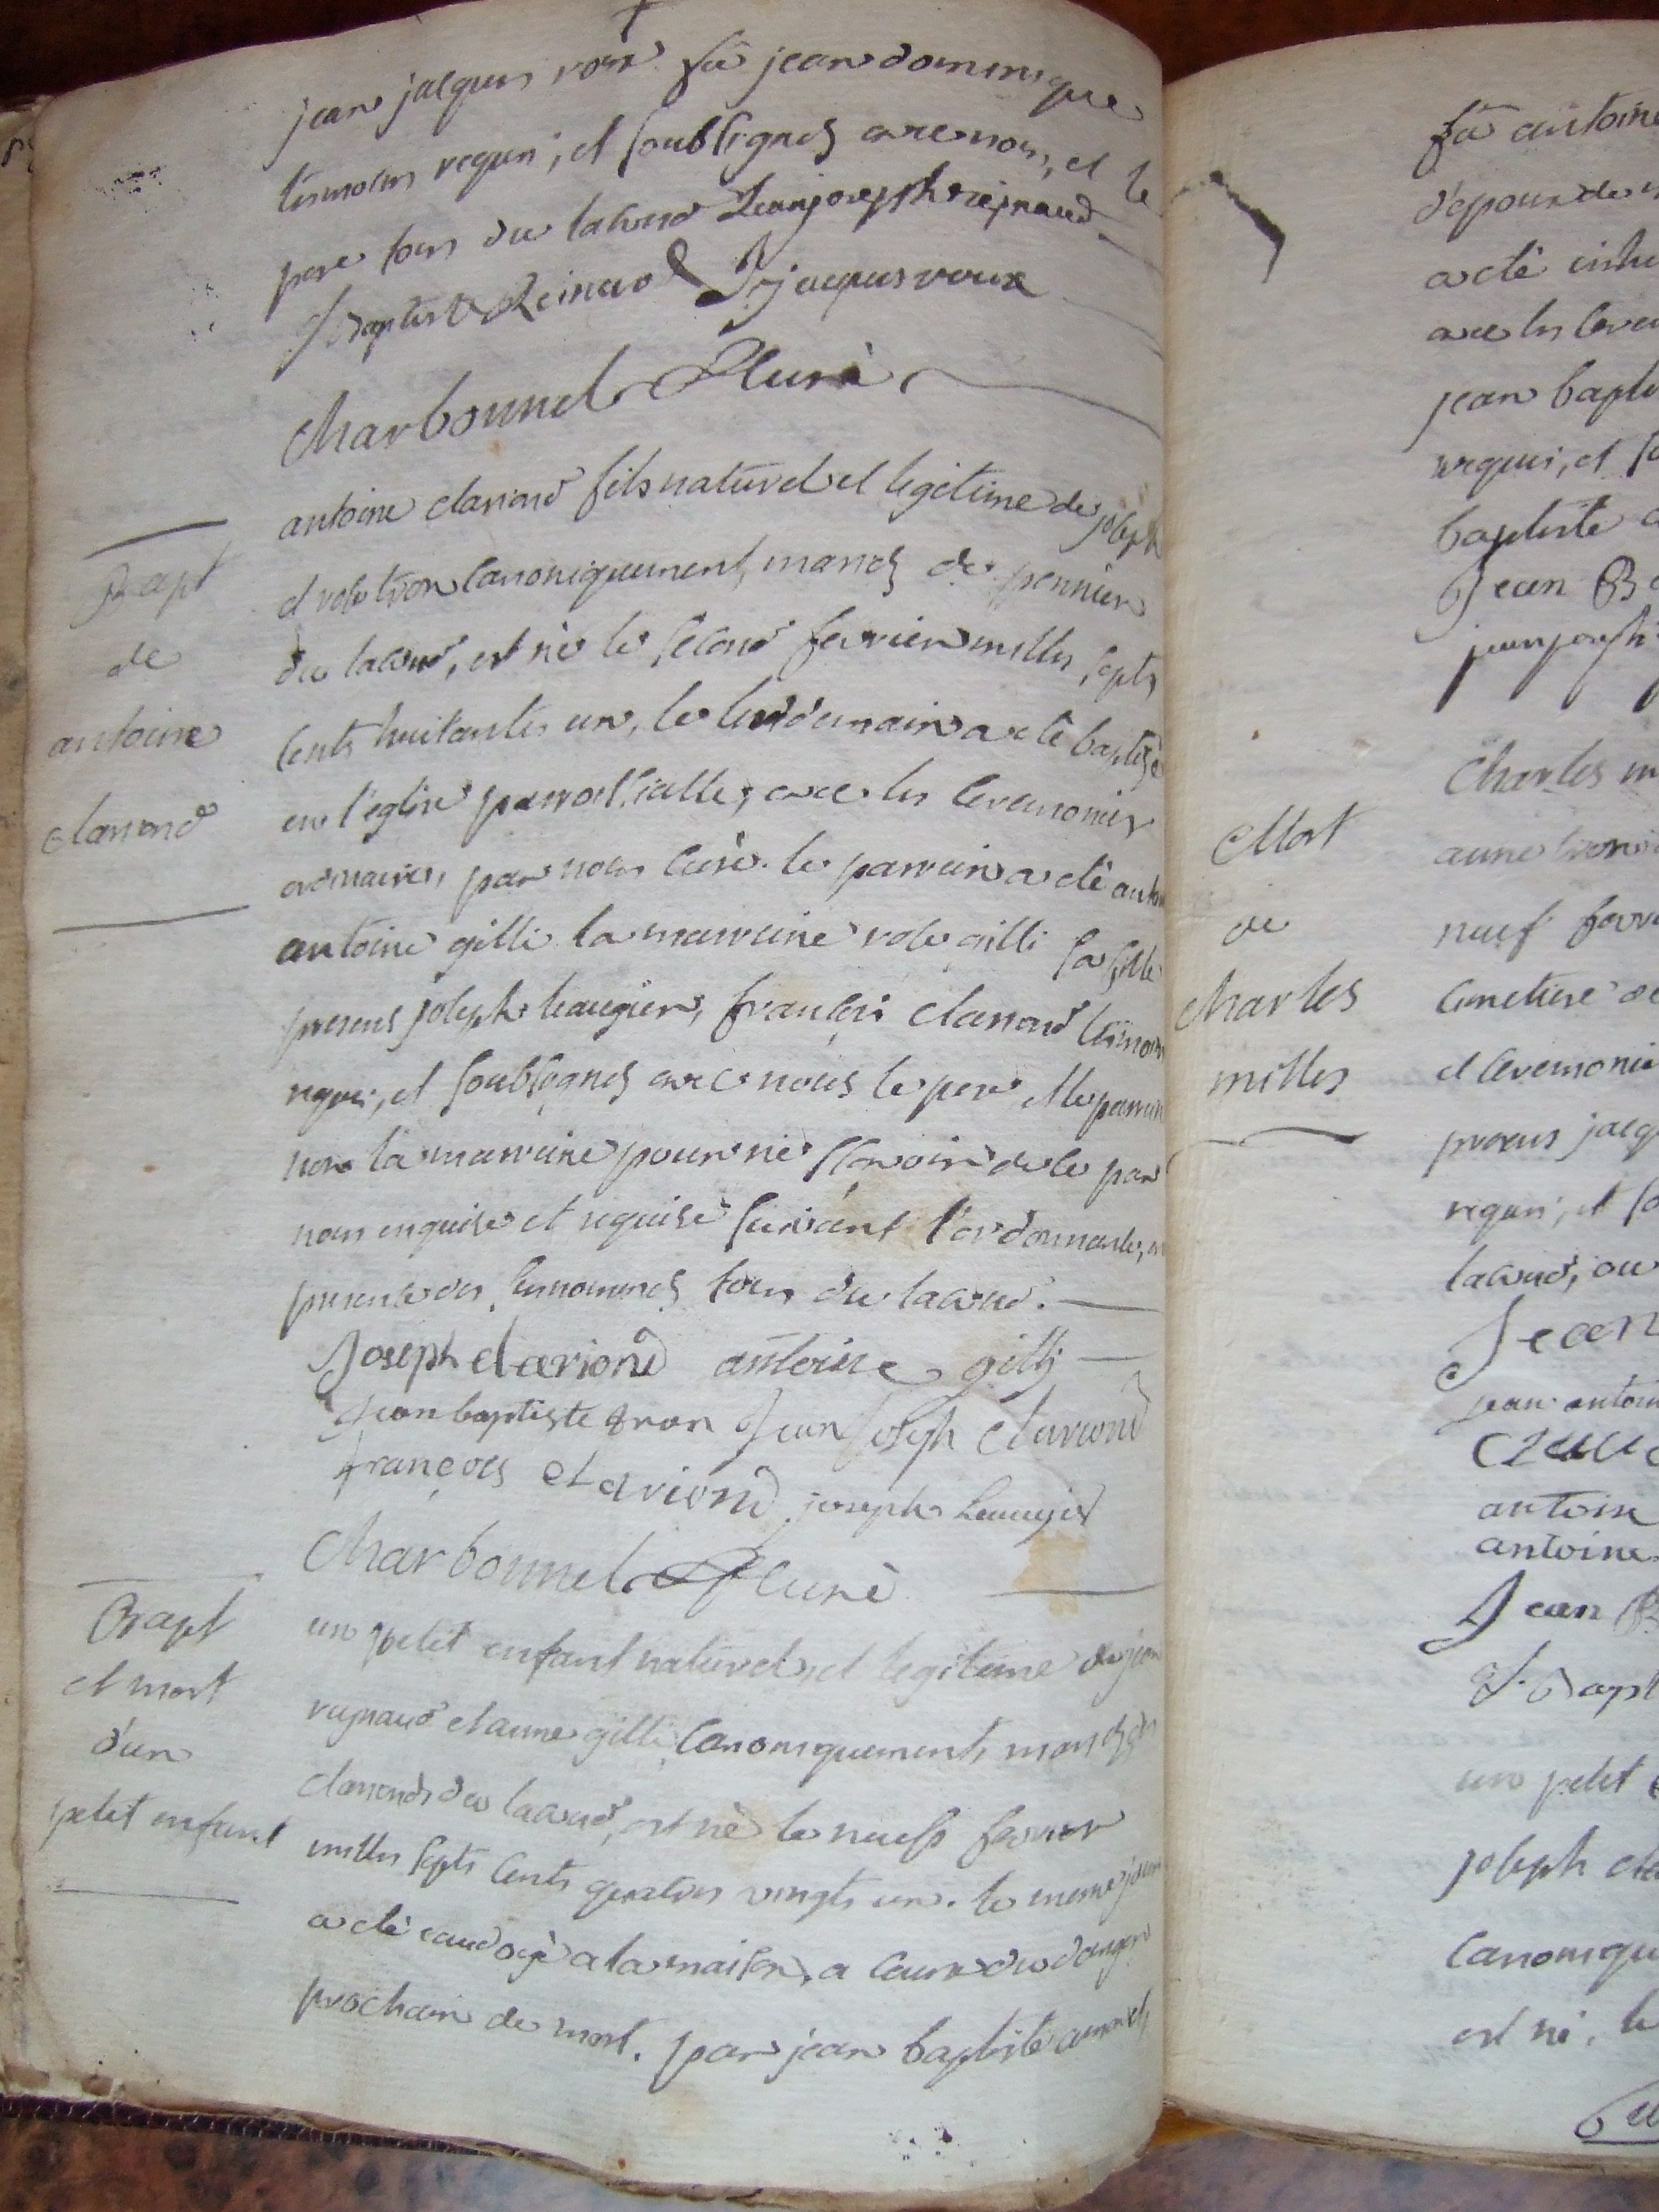 jean jacques roux fû jean dominique
temoins requi, et soubsignés avec nous, et le
pere tous du lacued Jean joseph reynaud
J Baptiste Reinaud J jacques roux
Charbonnel curè
antoine clariond fils naturel et legitime de joseph
et rose tron canoniquement mariés de
du lacued, est né le second fevrier milles, septs
cents huitantes un, le lendemain a eté baptizé
en l'eglise parroissialle, avec les ceremonies
ordinaires, par nous curè. le parrain a eté
antoine gilli la marraine rose gilli sa fille
presens joseph leaugier, françois clariond temoins
requi, et soubsignés avec nous le pere et le parrain
non la marraine pour ne sçavoir de le par
nous enquise et requise suivant l'ordonnance, en
presence des surnommés tous du lacued.
Joseph clariond antoine gilly
Jean baptiste tron Jean Joseph Clariond
françois clariond joseph leaugier
Charbonnel curè
un petit enfant naturel, et legitime de jean
reynaud et anne gilli canoniquements mariés des
clarionds du lacued, est né le neufs fevrier
milles septs cents quatres vingts un. le meme jour
a eté eaudoyé a la maison, a cause du danger
prochain de mort. par jean baptiste arnaud,
Bapt
de
antoine
clariond
Bapt
et mort
d'un
petit enfant
fû antoine
d'epoux de
a eté inhu
avec les cere
jean bapti
requi, et so
baptiste
Jean B
jean joseph
Mort
de
charles
milles
Charles m
anne tron
neuf fevri
cimetiere de
et ceremonie
presens jacq
requi, et so
lacued, ou
Jean
jean antoin
antoine
antoine
Jean B
J. Bapt
un petit
joseph cla
canonique
est né, le